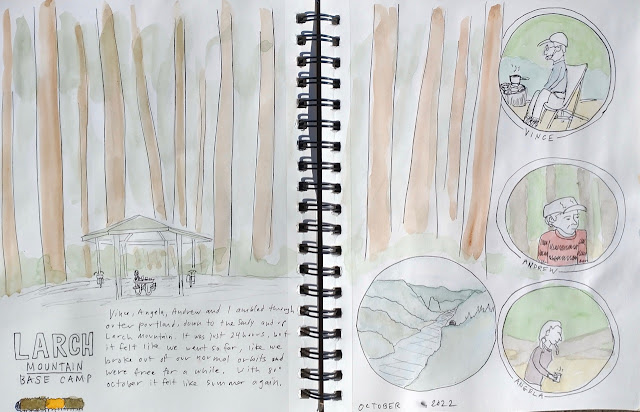 LARCH
MOUNTAIN
BASE CAMP
Vince, Angela, Andrew and I ambled through
outer portland, down to the Sandy and up
Larch mountain. It was just 24 hours, but
it felt like we went so far, like we
broke out of our normal orbits and
were free for a while. With 80°
october it felt like summer again.
VINCE
ANDREW
ANGELA
OCTOBER 2022